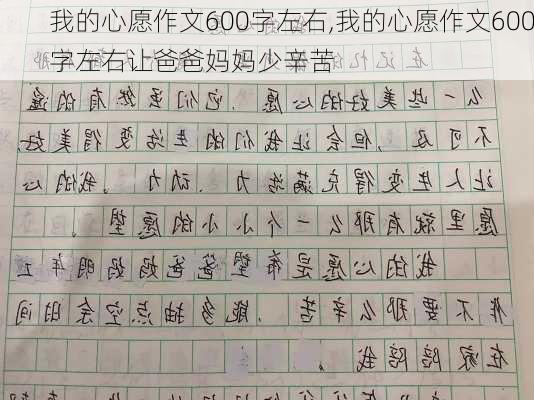 我的心愿作文600字左右,我的心愿作文600
字左右让爸爸妈妈少辛苦
么一些美好的心愿，它们虽然有的遥
不可及，但会让我们的生活变得美好，
让人生变得充满活力、动力。我的心
愿里就有那么一个小小的愿望。
我的心愿是希望爸爸妈妈明年工
作不要那么辛苦。能多抽点空余时间
在家陪陪我。